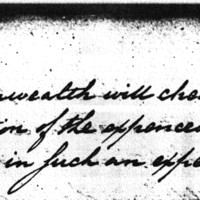 nwealth will che
ion of the expences
in such an expe